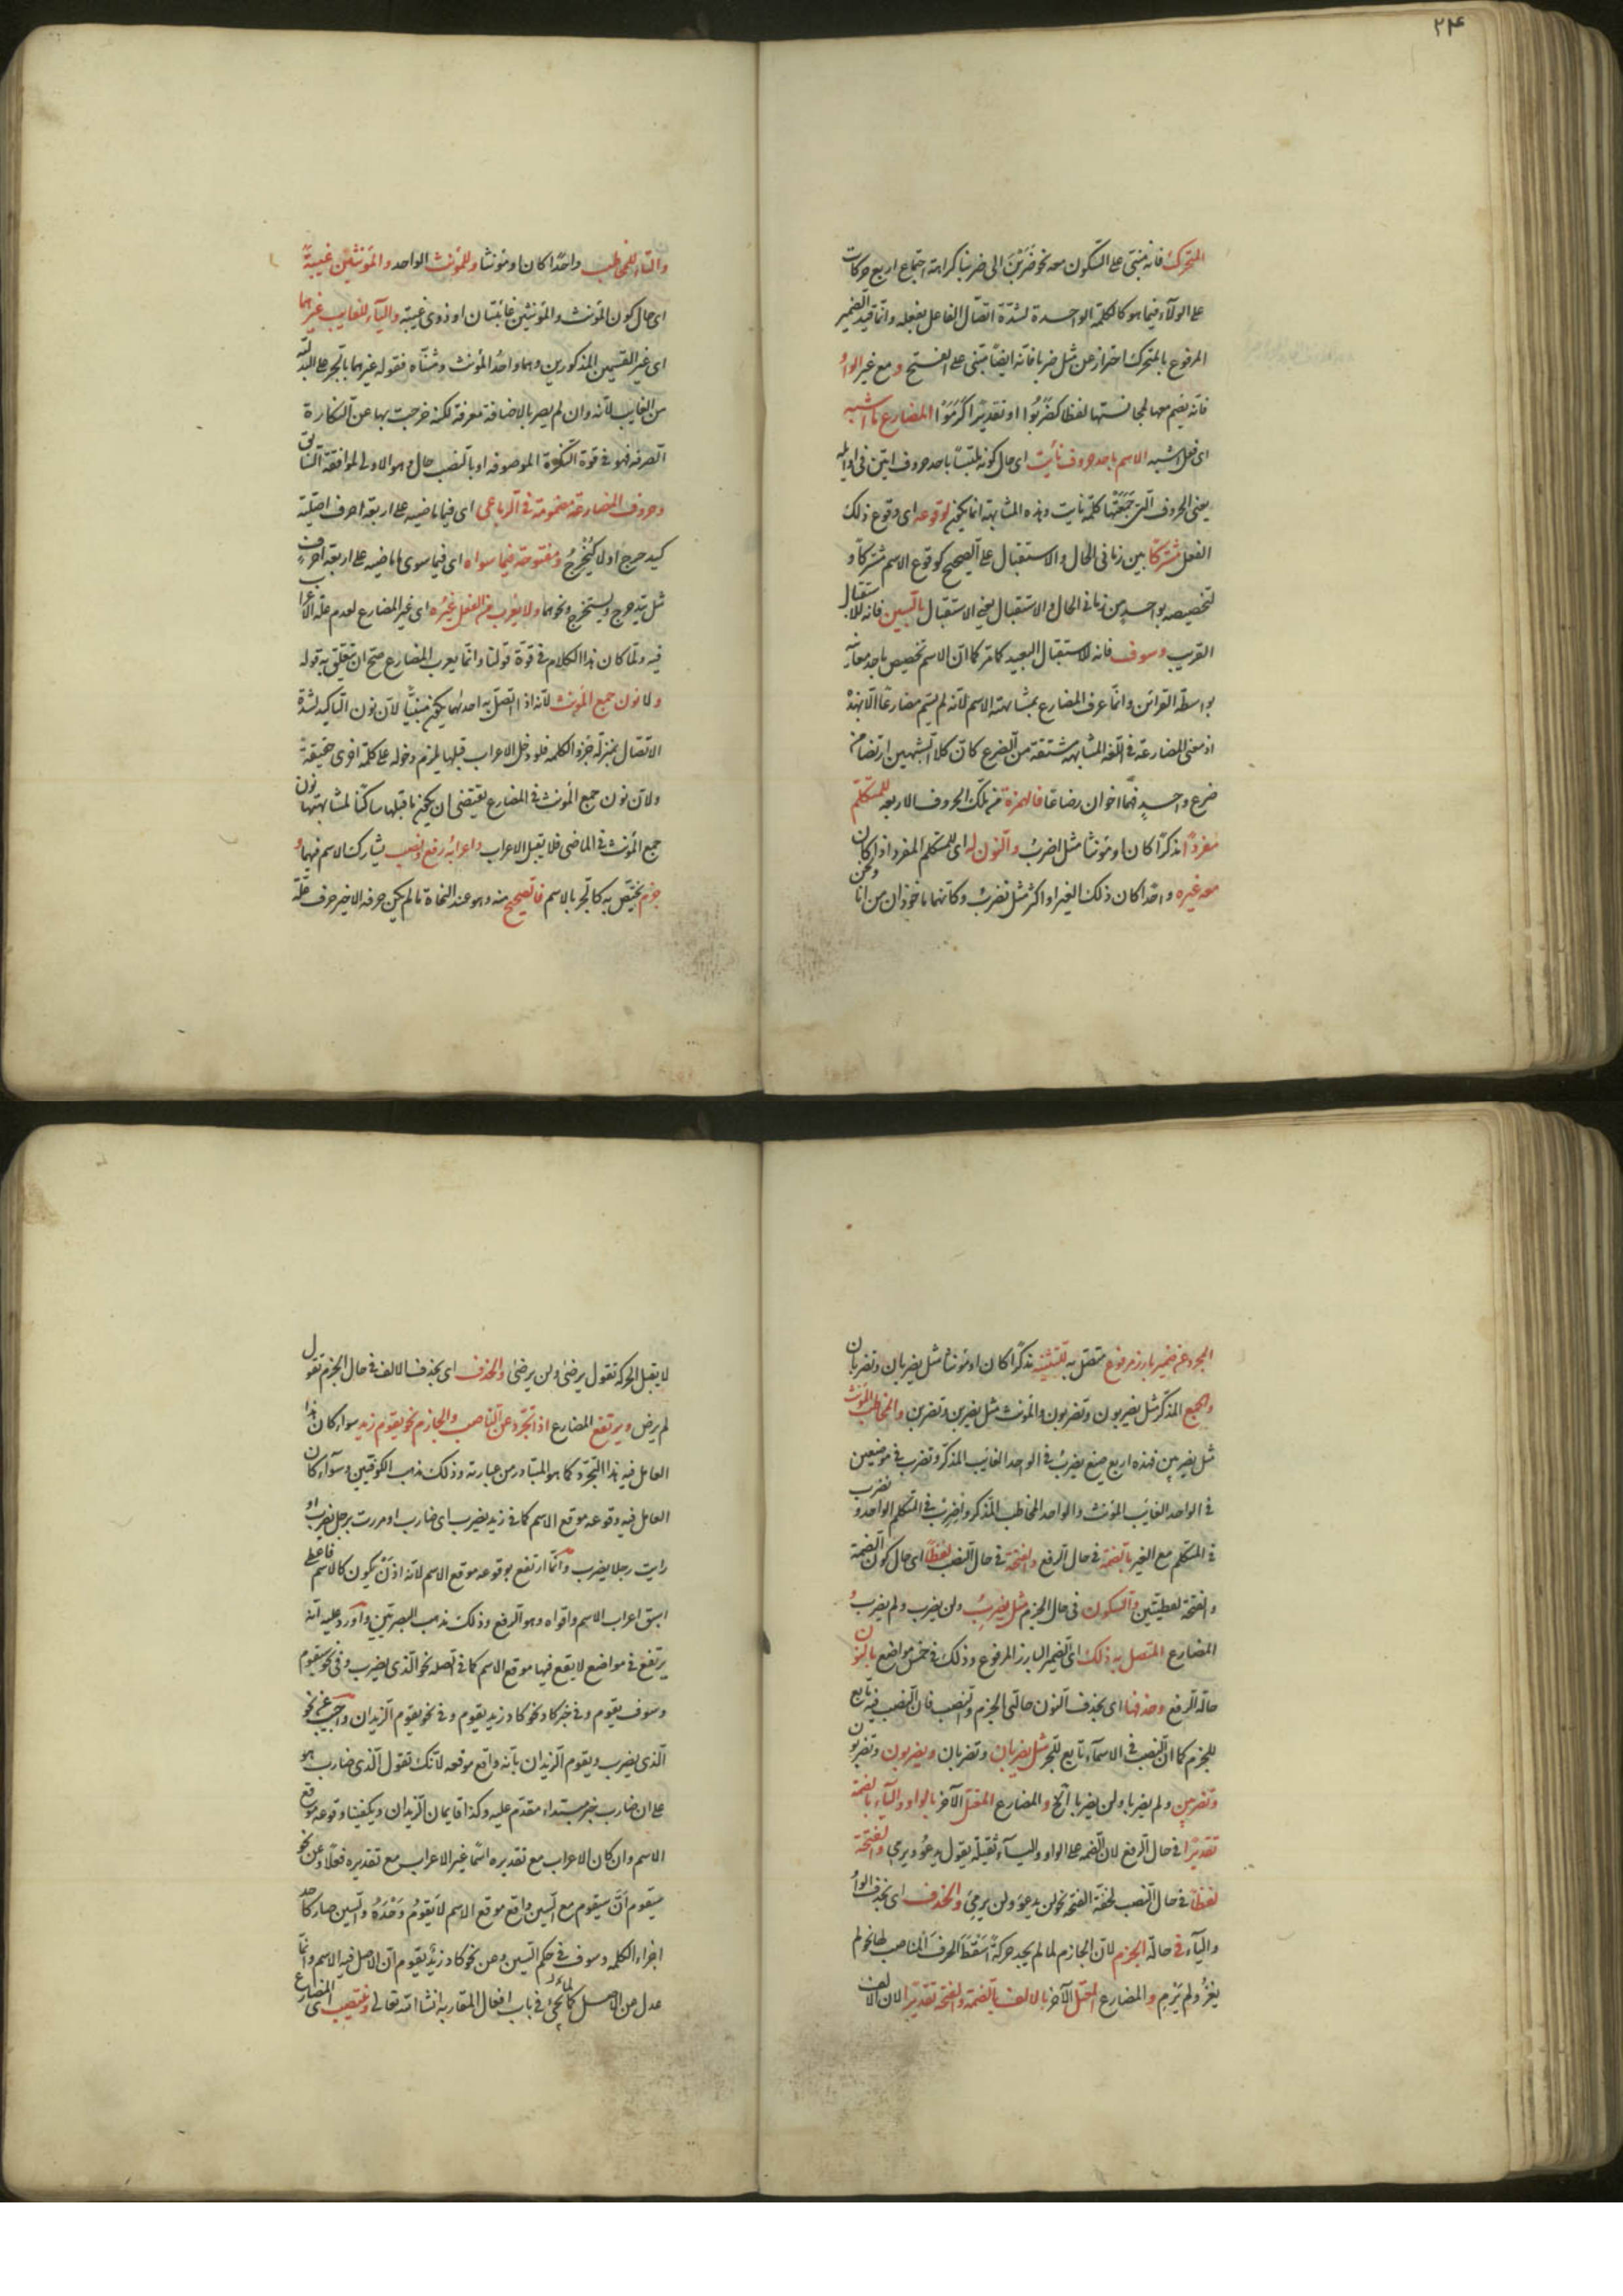 ۲۴
المتحرك فانه مبنى على السكون معه نحو ضربن الى ضربنا كراهة اجتماع اربع حركات
على الولاء فيما هو كالكلمة الواحدة لشدة اتصال الفاعل بفعله وانما قيد الضمير
المرفوع بالمتحرك احتراز عن مثل ضربا فانه ايضا مبنى على الفتح و مع غير الواو
فانه يضم معها لمجانستها لفظا كضربوا او تقديرا كرموا المضارع ما اشبه
اى فعل اشبه الاسم باحد حروف نأيت اى حال كونه ملتبسا باحد حروف اتين فى اوائله
يعنى الحروف التى جمعتها كلمة نايت وهذه المشابهة انما يكون لوقوعه اى وقوع ذلك
الفعل مشتركا بين زمانى الحال والاستقبال على الصحيح كوقوع الاسم مشتركا و
لتخصيصه بواحد من زمانى الحال والاستقبال يعنى الاستقبال بالسين فانه للاستقبال
القريب وسوف فانه للاستقبال البعيد كما مر كما ان الاسم تخصيص باحد معانيه
بواسطة القرائن وانما عرف المضارع بمشابهته الاسم لانه لم يسم مضارعا الا لهذه
اذ معنى المضارعة فى اللغة المشابهة مشتقة من الضرع كان كلا الشبهين ارتضعا من
ضرع واحد فهما اخوان رضاعا فالهمزة من تلك الحروف الاربعة للمتكلم
مفردا مذكرا كان او مؤنثا مثل اضرب والنون له اى للمتكلم المفرد اذا كان
معه غيره واحدا كان ذلك الغير او اكثر مثل نضرب وكانهما ماخوذان من انا ونحن
والتاء للمخاطب واحدا كان او مؤنثا وللمؤنث الواحد والمؤنثين غيبة
اى حال كون المؤنث والمؤنثين غائبتان او ذوى غيبة والياء للغايب غيرهما
اى غير القسمين المذكورين وهما واحد المؤنث ومثناه فقوله غيرهما بالجر على البدلية
من الغايب لانه وان لم يصر بالاضافة معرفة لكنه خرجت بها عن النكارة
الصرفة فهو فى قوة النكرة الموصوفة او بالنصب حال وهو الاولى لموافقة السابق
وحروف المضارعة مضمومة فى الرباعى اى فيما ماضيه على اربعة احرف اصلية
كيدحرج او لا كيخرج ومفتوحة فيما سواه اى فيما سوى ما ماضيه على اربعة احرف
مثل يتدحرج ويستخرج ونحوهما ولا يعرب من الفعل غيره اى غير المضارع لعدم علة الاعراب
فيه ولما كان هذا الكلام فى قوة قولنا وانما يعرب المضارع صح ان يتعلق به قوله
ولا نون جمع المؤنث لانه اذا اتصل به احدهما يكون مبنيا لان نون التاكيد لشدة
الاتصال بمنزلة جزء الكلمة فلو دخل الاعراب قبلها يلزم دخوله على كلمة اخرى حقيقة
ولان نون جمع المؤنث فى المضارع يقتضى ان يكون ما قبلها ساكنا لمشابهتها نون
جمع المؤنث فى الماضى فلا يقبل الاعراب واعرابه رفع ونصب يشارك الاسم فيهما و
جزم يختص به كالجر بالاسم فالصحيح منه وهو عند النحاة ما لم يكن حرفه الاخير حرف علة
المجرد عن ضمير بارز مرفوع متصل به للتثنية مذكرا كان او مؤنثا مثل يضربان وتضربان
والجمع المذكر مثل يضربون وتضربون والمؤنث مثل يضربن وتضربن والمخاطب المؤنث
مثل تضربين فهذه اربع صيغ يضرب فى الواحد الغايب المذكر وتضرب فى موضعين
فى الواحد الغايب المؤنث والواحد المخاطب المذكر واضرب فى المتكلم الواحد ونضرب
فى المتكلم مع الغير بالضمة فى حال الرفع والفتحة فى حال النصب لفظا اى حال كون الضمة
والفتحة لفظيتين والسكون فى حال الجزم مثل يضرب ولن يضرب ولم يضرب و
المضارع المتصل به ذلك اى الضمير البارز المرفوع وذلك فى خمس مواضع بالنون
حالة الرفع وحذفها اى بحذف النون حالتى الجزم والنصب فان النصب فيه تابع
للجزم كما ان النصب فى الاسماء تابع للجر مثل يضربان وتضربان ويضربون وتضربون
وتضربين ولم يضربا ولن يضربا الخ والمضارع المعتل الآخر بالواو والياء بالضمة
تقديرا فى حال الرفع لان الضمة على الواو والياء ثقيلة يقول يدعو ويرمى والفتحة
لفظا فى حال النصب لخفة الفتحة نحو لن يدعو ولن يرمى والحذف اى بحذف الواو
والياء فى حالة الجزم لان الجازم لما لم يجد حركة اسقط الحرف المناسب لها نحو لم
يغز ولم يرم والمضارع المعتل الآخر بالالف بالضمة والفتحة تقديرا لان الالف
لا يقبل الحركة تقول يرضى ولن يرضى والحذف اى بحذف الالف فى حال الجزم تقول
لم يرض ويرتفع المضارع اذا تجرد عن الناصب والجازم نحو يقوم زيد سواء كان
العامل فيه هذا التجرد كما هو المتبادر من عبارته وذلك مذهب الكوفيين وسواء كان
العامل فيه وقوعه موقع الاسم كما فى زيد يضرب اى ضارب او مررت برجل يضرب او
رايت رجلا يضرب وانما ارتفع بوقوعه موقع الاسم لانه اذن يكون كالاسم فاعطى
اسبق اعراب الاسم واقواه وهو الرفع وذلك مذهب البصريين واورد عليه انه
يرتفع فى مواضع لا يقع فيها موقع الاسم كما فى الصلة نحو الذى يضرب وفى نحو سيقوم
وسوف يقوم وفى خبر كاد نحو كاد زيد يقوم وفى نحو يقوم الزيدان واجيب عن نحو
الذى يضرب ويقوم الزيدان بانه واقع موقعه لانك تقول الذى ضارب هو
على ان ضارب خبر مبتداء مقدم عليه وكذا قايمان الزيدان ويكفينا وقوعه موقع
الاسم وان كان الاعراب مع تقديره اسما غير الاعراب مع تقديره فعلا وعن نحو
سيقوم ان سيقوم مع السين واقع موقع الاسم لا يقوم وحده والسين صار كاحد
اجزاء الكلمة وسوف فى حكم السين وعن نحو كاد زيد يقوم ان الاصل فيه الاسم وانما
عدل عن الاصل كما يجئ فى باب افعال المقاربة انشاء الله تعالى وينتصب المضارع